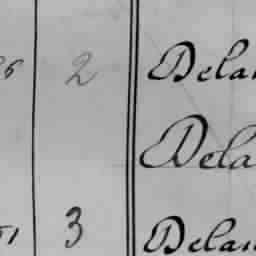 26 2 Delan
Dela
51 3 Delan